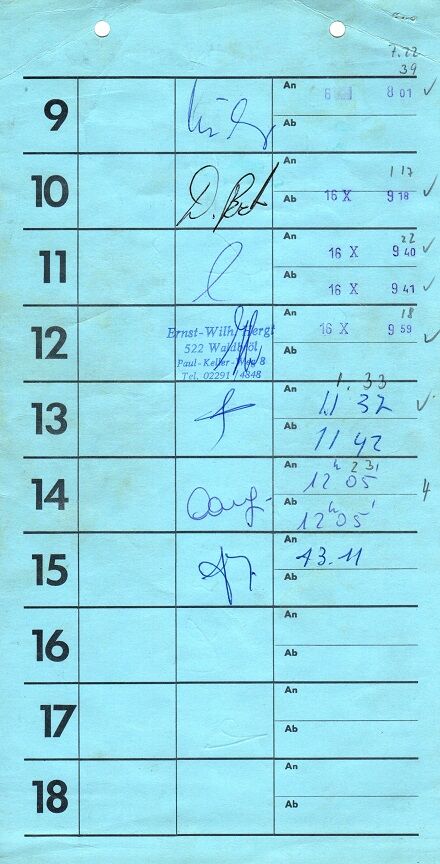 7.22
39
9
An
8 01
Ab
10
An
1 17
Ab
16 X 9 18
11
An
22
16 X 9 40
Ab
16 X 9 41
12
An
18
16 X 9 59
Ab
Ernst-Wilh. Bergt
522 Waldbröl
Paul-Keller-Weg 8
Tel. 02291 / 4848
13
1.33
An
11 32
Ab
11 42
14
An
2 31
12h 05
Ab
12h 05'
4
15
An
13.11
Ab
16
An
Ab
17
An
Ab
18
An
Ab